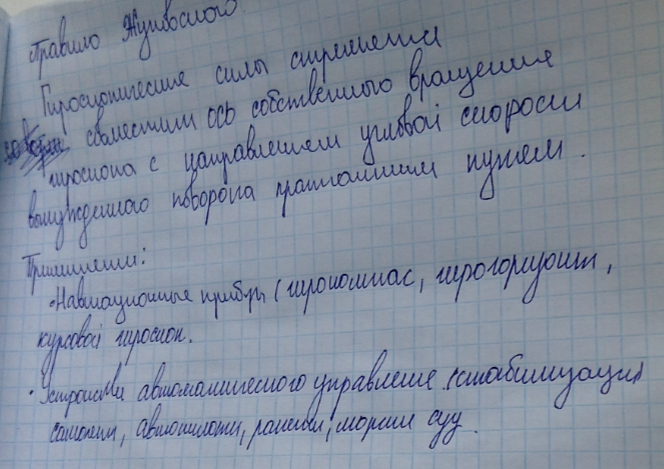 Правило Жуковского
Гироскопические силы стремятся
совместить ось собственного вращения
гироскопа с направлением угловой скорости
вынужденного поворота кратчайшим путем.
Применение:
• Навигационные приборы (гирокомпас, гирогоризонт,
курсовой гироскоп.
• Устройства автоматического управления (стабилизация)
самолеты, автопилоты, ракеты, морские суд.